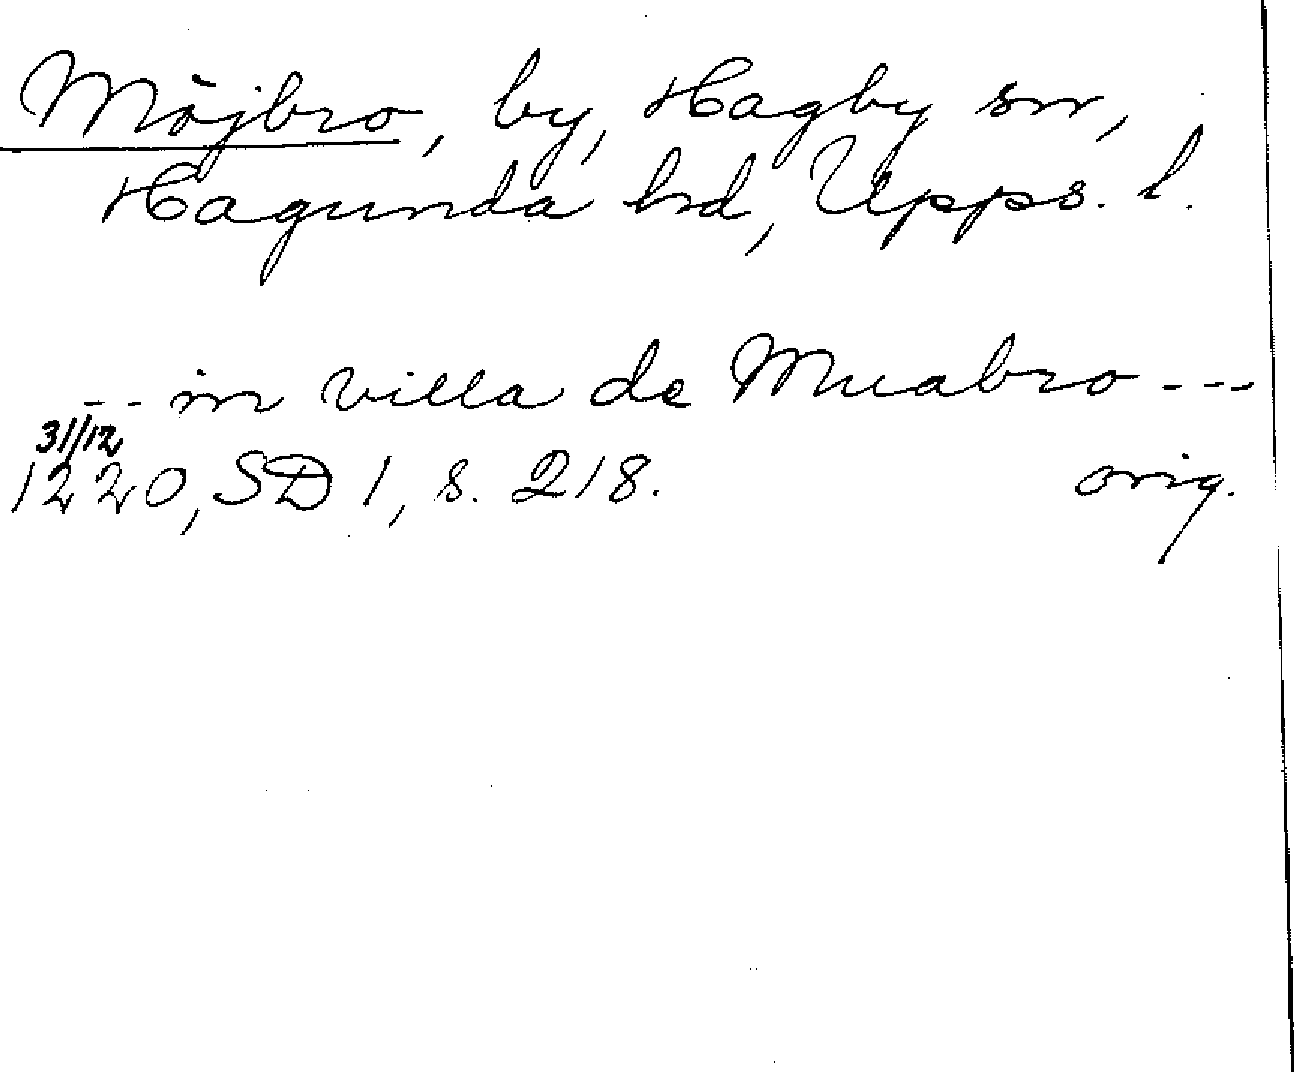 Möjbro, by, Hagby sn,
Hagunda hd, Upps. l.
-- in villa de Muabro ---
31/12
1220, SD 1, s. 218. orig.